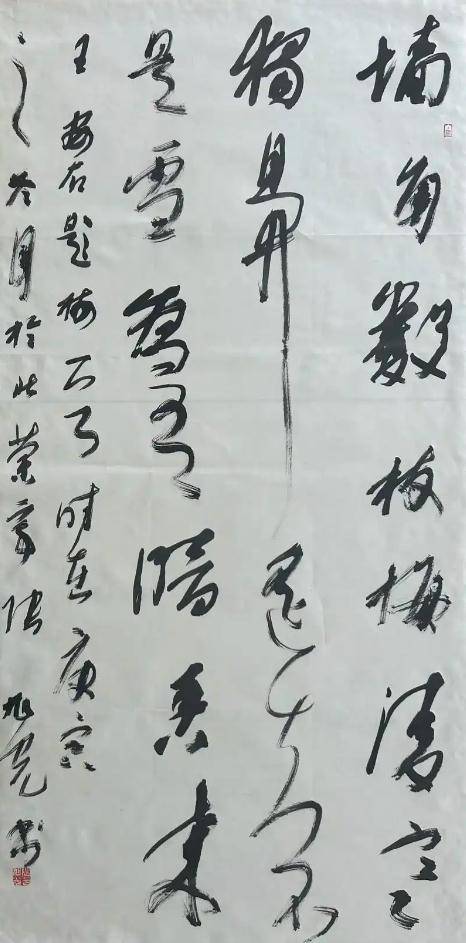 墙角數枝梅凌寒
獨自开遥知不
是雪為有暗香来
王安石题梅时在庚寅
之冬月於张旭光书